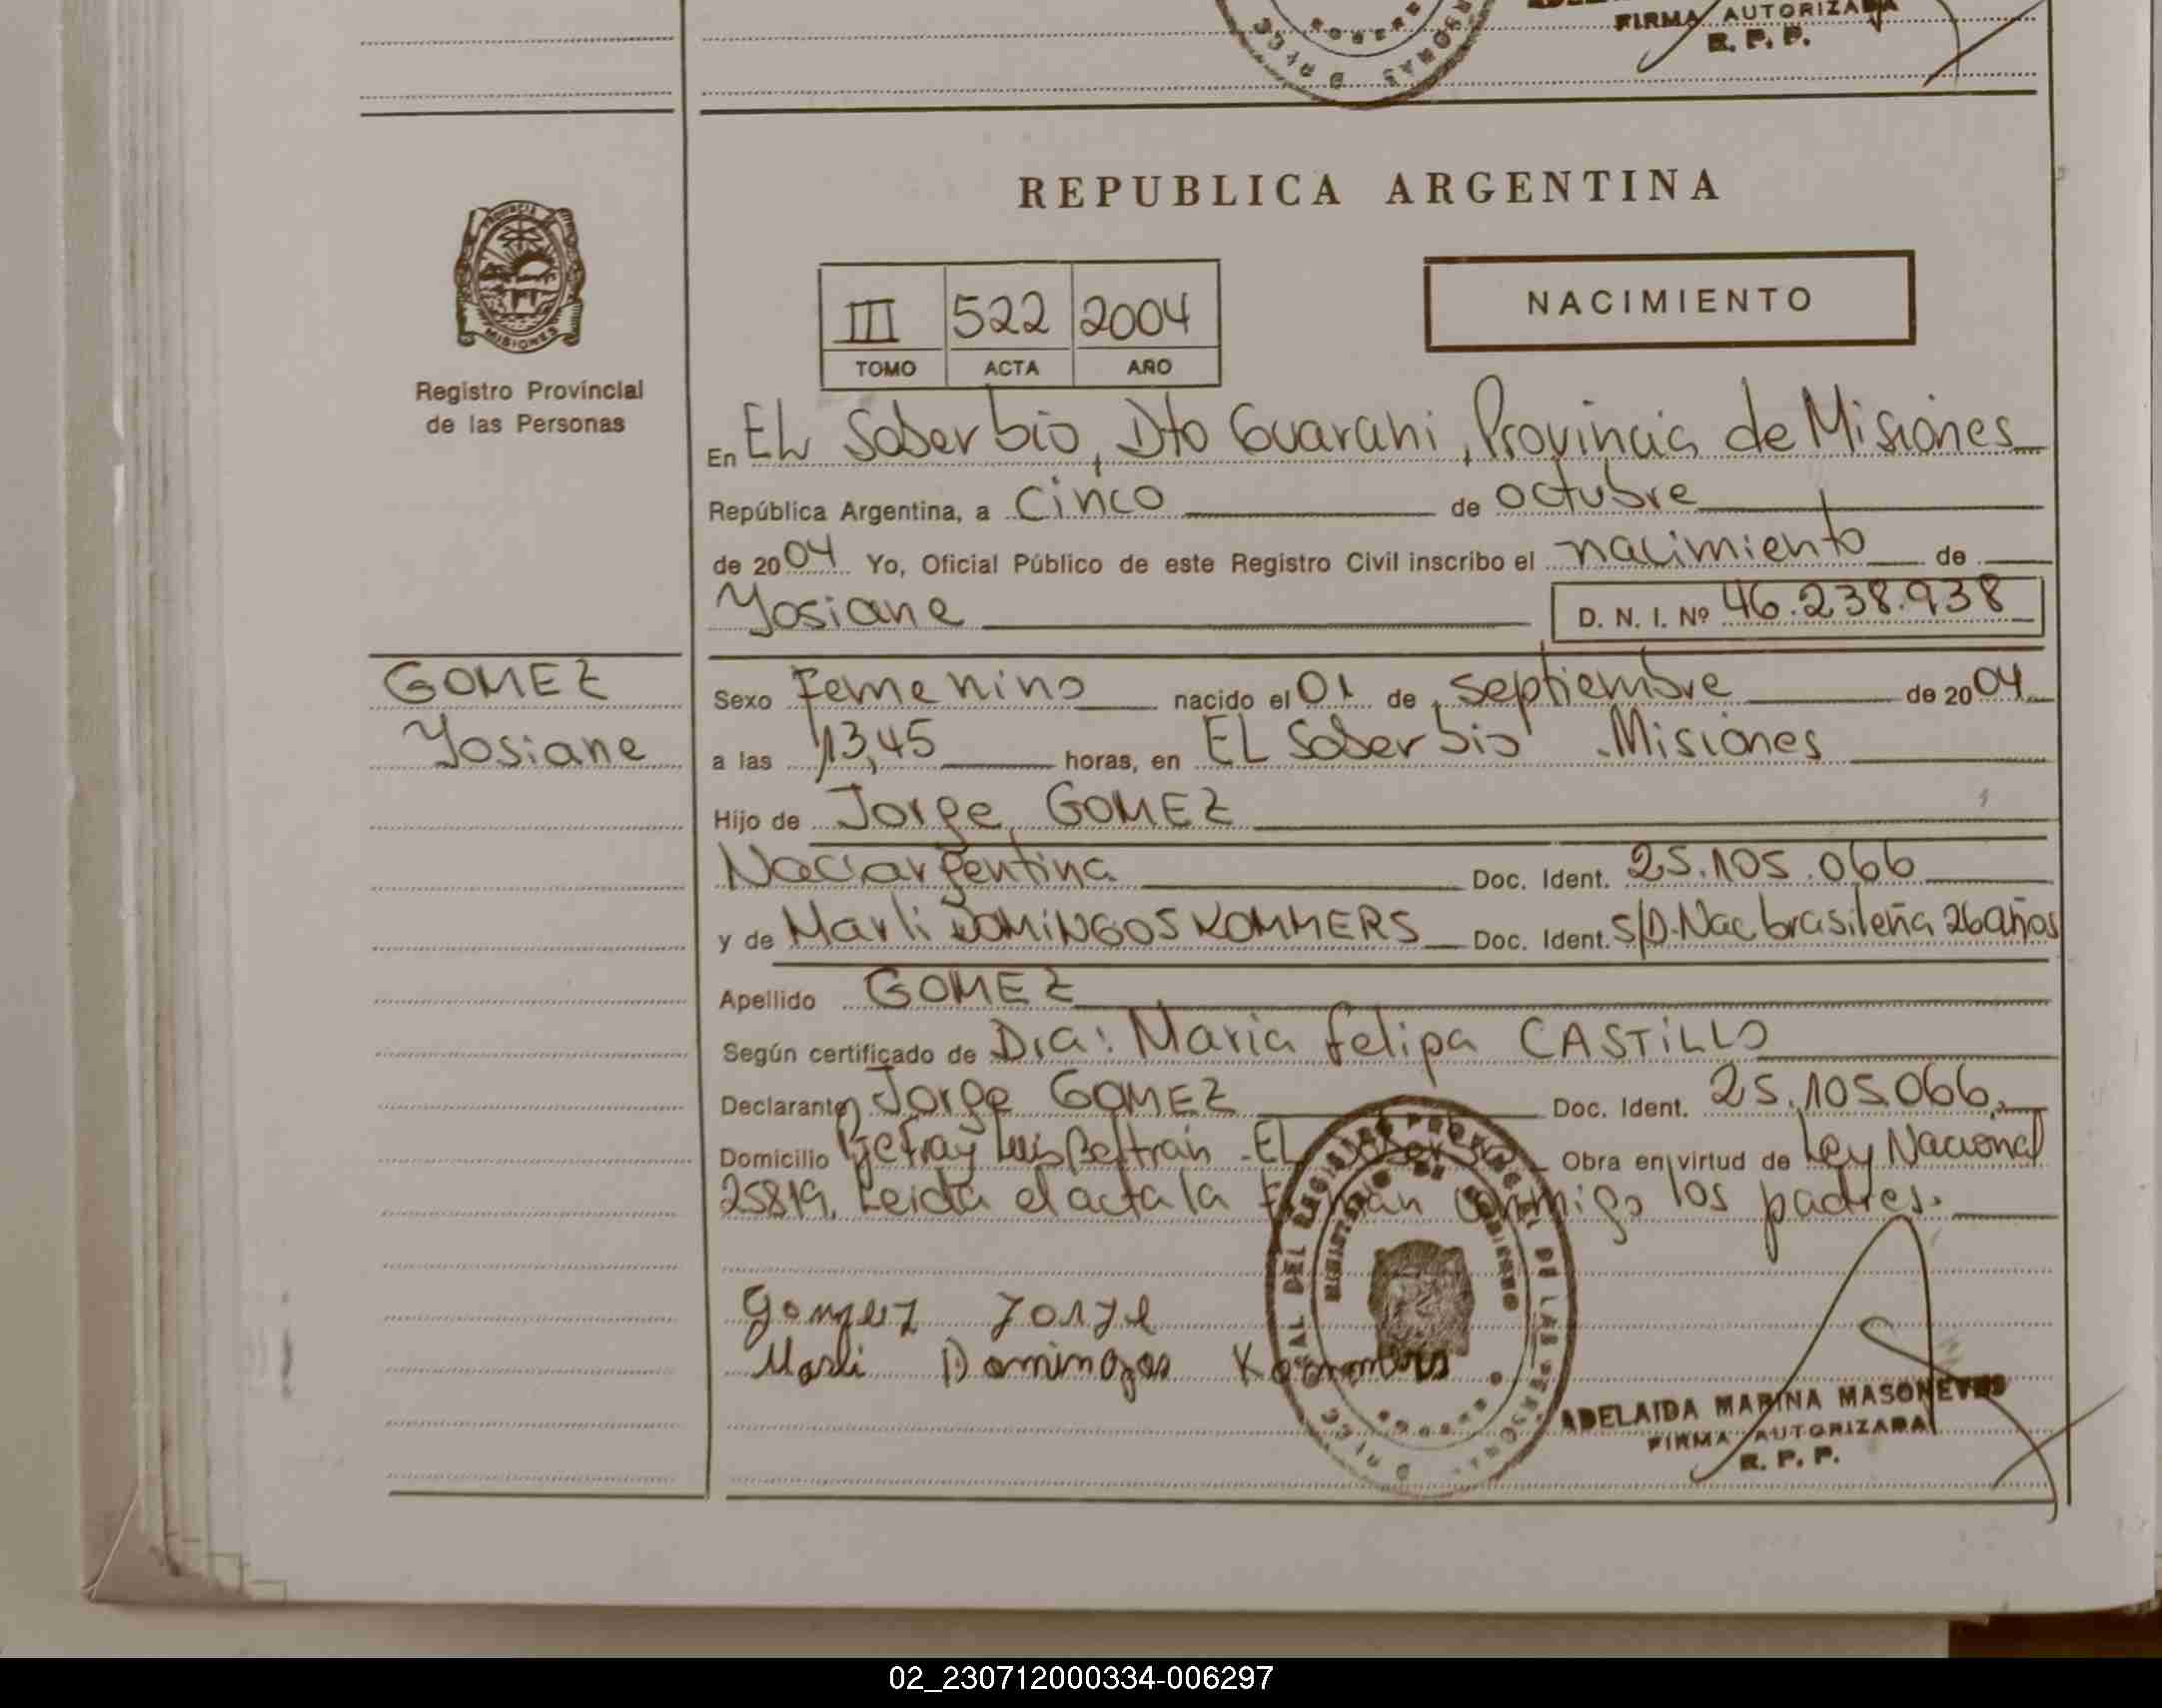 FIRMA AUTORIZADA
R. P. P.
REPUBLICA ARGENTINA
PROVINCIA DE
MISIONES
Registro Provincial
de las Personas
III 522 2004
TOMO ACTA AÑO
NACIMIENTO
En EL Soberbio, Dto Guarani, Provincia de Misiones
República Argentina, a cinco de octubre
de 2004 Yo, Oficial Público de este Registro Civil inscribo el nacimiento de
Yosiane D. N. I. Nº 46.238.938
GOMEZ
Yosiane
Sexo Femenino nacido el 01 de septiembre de 2004
a las 13,45 horas, en EL Soberbio Misiones
Hijo de Jorge GOMEZ
Nac. argentina Doc. Ident. 25.105.066
y de Marli DOMINGOS KOMMERS Doc. Ident. S/D. Nac brasileña 26 años
Apellido GOMEZ
Según certificado de Dra: Maria Felipa CASTILLO
Declarante Jorge GOMEZ Doc. Ident. 25.105.066
Domicilio Pje Fray Luis Beltrán - EL Soberbio Obra en virtud de Ley Nacional
25819. Leida el acta la firman conmigo los padres.
Gomez Jorge
Marli Domingos Kommers
ADELAIDA MARINA MASONEVES
FIRMA AUTORIZADA
R. P. P.
02_230712000334-006297